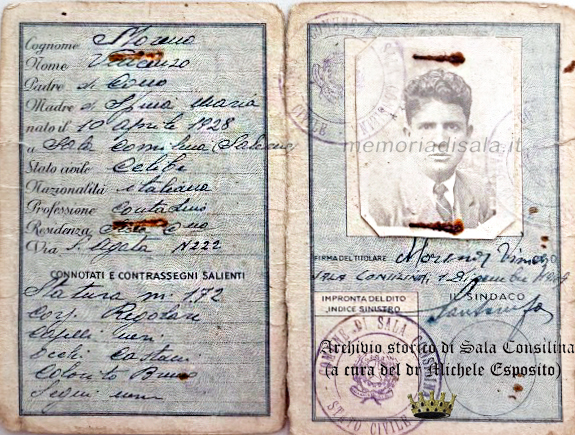 Cognome Moreno
Nome Vincenzo
Padre di Cono
Madre di Spina Maria
nato il 10 Aprile 1928
a Sala Consilina (Salerno)
Stato civile Celibe
Nazionalità italiana
Professione Contadino
Residenza
Via S. Agata N 222
CONNOTATI E CONTRASSEGNI SALIENTI
Statura m. 1.72
Corp. Regolare
Capelli neri
Occhi Castani
Colorito Bruno
Segni
memoriadisala.it
FIRMA DEL TITOLARE Moreno
SALA CONSILINA,
IMPRONTA DEL DITO
INDICE SINISTRO
IL SINDACO
COMUNE DI SALA CONSILINA
STATO CIVILE
Archivio storico di Sala Consilina
(a cura del dr Michele Esposito)